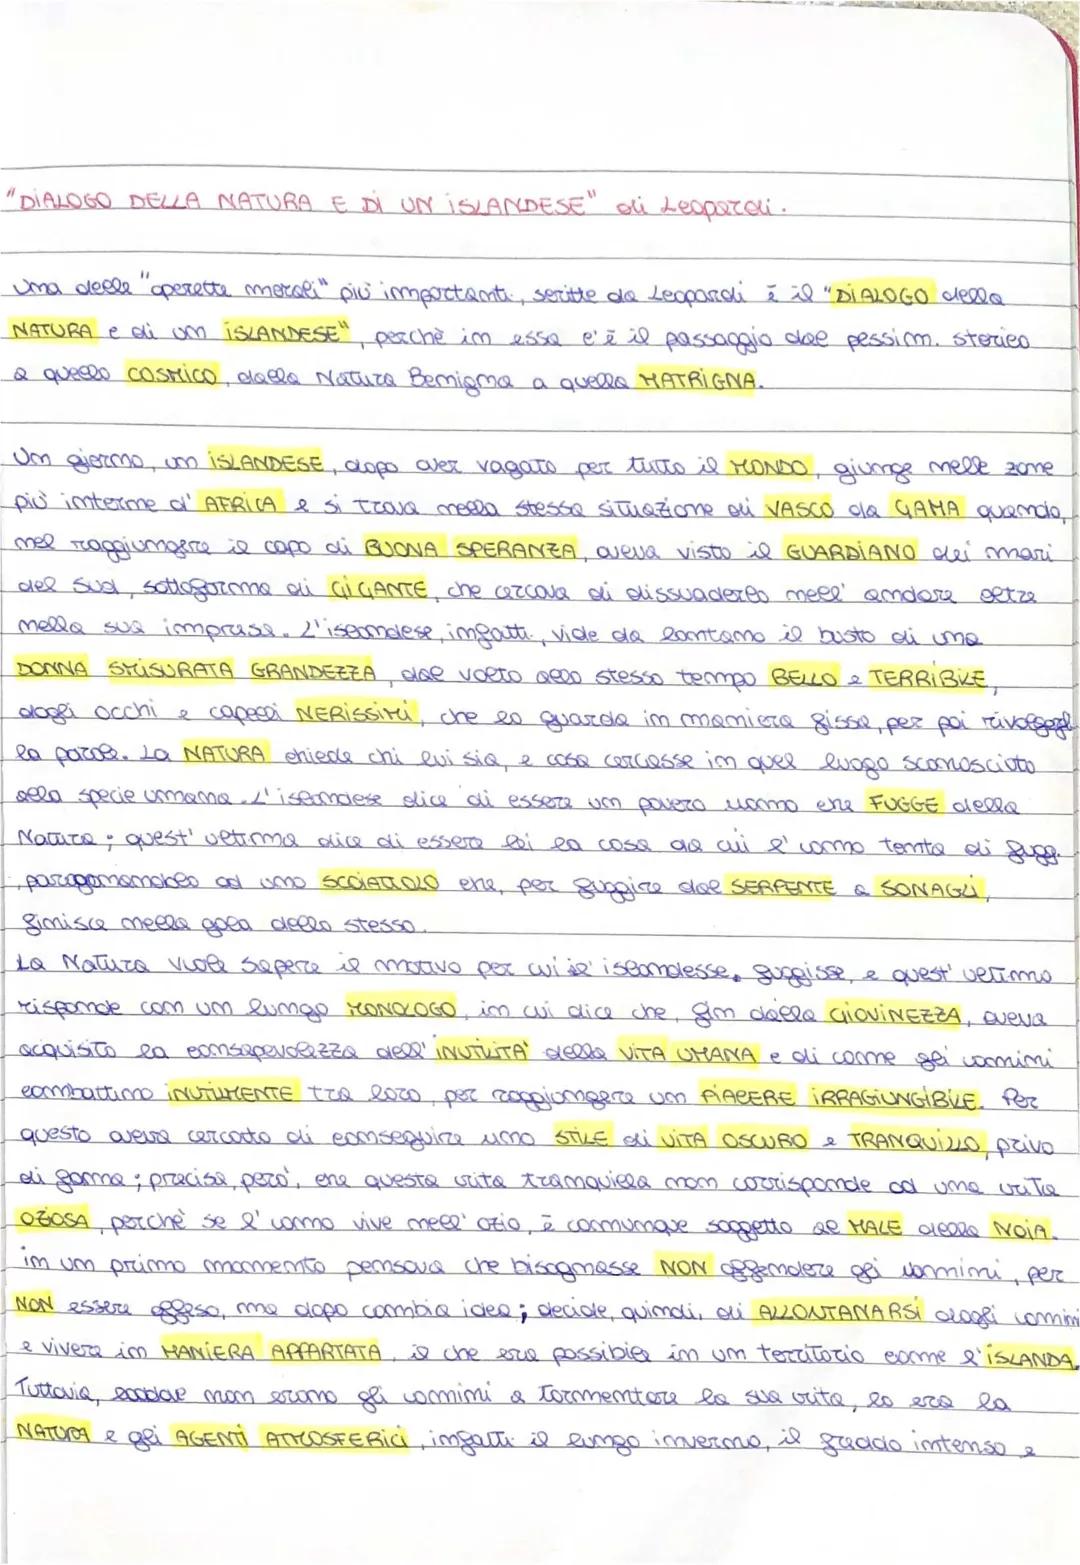 "DIALOGO DELLA NATURA E DI UN ISLANDESE" di Leopardi.
Una delle "operette morali" più importanti, scritte da Leopardi è il "DIALOGO della
NATURA e di un ISLANDESE", perchè in essa c'è il passaggio dal pessim. storico
a quello COSMICO, dalla Natura Benigna a quella MATRIGNA.
Un giorno, un ISLANDESE, dopo aver vagato per tutto il MONDO, giunge nelle zone
più interne d'AFRICA e si trova nella stessa situazione di VASCO da GAMA quando,
nel raggiungere il capo di BUONA SPERANZA, aveva visto il GUARDIANO dei mari
del Sud, sottoforma di GIGANTE, che cercava di dissuaderlo nell'andare oltre
nella sua impresa. L'islandese, infatti, vide da lontano il busto di una
DONNA SMISURATA GRANDEZZA, dal volto allo stesso tempo BELLO e TERRIBILE,
dagli occhi e capelli NERISSIMI, che lo guarda in maniera fissa, per poi rivolgergli
la parola. La NATURA chiede chi lui sia, e cosa cercasse in quel luogo sconosciuto
alla specie umana. L'islandese dice di essere un povero uomo che FUGGE della
Natura; quest'ultima dice di essere lei la cosa da cui l'uomo tenta di fugg.
paragonandolo ad uno SCOIATTOLO che, per fuggire dal SERPENTE a SONAGLI,
finisce nella gola dello stesso.
La Natura vuole sapere il motivo per cui l'islandesse fuggisse, e quest'ultimo
risponde con un lungo MONOLOGO, in cui dice che, fin dalla GIOVINEZZA, aveva
acquisito la consapevolezza dell'INUTILITA' della VITA UMANA e di come gli uomini
combattino INUTILMENTE tra loro, per raggiungere un PIACERE IRRAGIUNGIBILE. Per
questo aveva cercato di conseguire uno STILE di VITA OSCURO e TRANQUILLO, privo
di fama; precisa, però, che questa vita tranquilla non corrisponde ad una vita
OZIOSA, perchè se l'uomo vive nell'ozio, è comunque soggetto al MALE della NOIA.
in un primo momento pensava che bisognasse NON offendere gli uomini, per
NON essere offeso, ma dopo cambia idea; decide, quindi, di ALLONTANARSI dagli uomini
e vivere in MANIERA APPARTATA, il che era possibile in un territorio come l'ISLANDA.
Tuttavia, laddove non erano gli uomini a tormentare la sua vita, lo era la
NATURA e gli AGENTI ATMOSFERICI, infatti il lungo inverno, il freddo intenso e